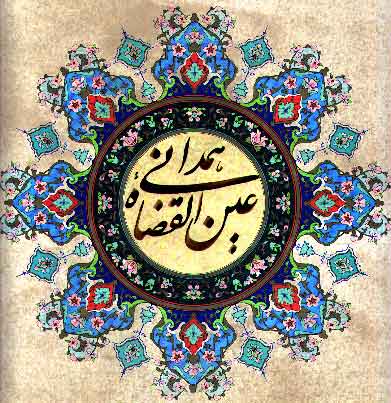 عین القضاهٔ
همدانی